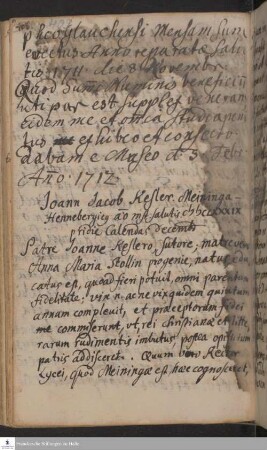 phe Glauchensi Mensam Sum
Anno reparatæ Salu
tis 1711. die 8 Novembr
Quod Summi Numinis beneficium
uti par est supplex veneran
eidem me et omnia studia peni
tus exhibeo et consecro
dabam e Museo d. 5. Febr
Año. 1712.
Joann Jacob Kesler. Meininga-
Hennebergicus aõ salutis
pridie Calendas Decembr
Patre Joanne Keslero Sutore, matre vero
Anna Maria progenie, natus, edu
catus est, quoad fieri potuit, omni parentum
fidelitate; vix n. ac ne vix quidem quintum
annum complevit, et præceptorum fidei
me commiserunt, ut, rei christianæ et litte
rarum rudimentis imbutus, postea opificium
patris addisceret. Quum vero Rector
Lycei, quod Meiningæ est hæc cognosceret,